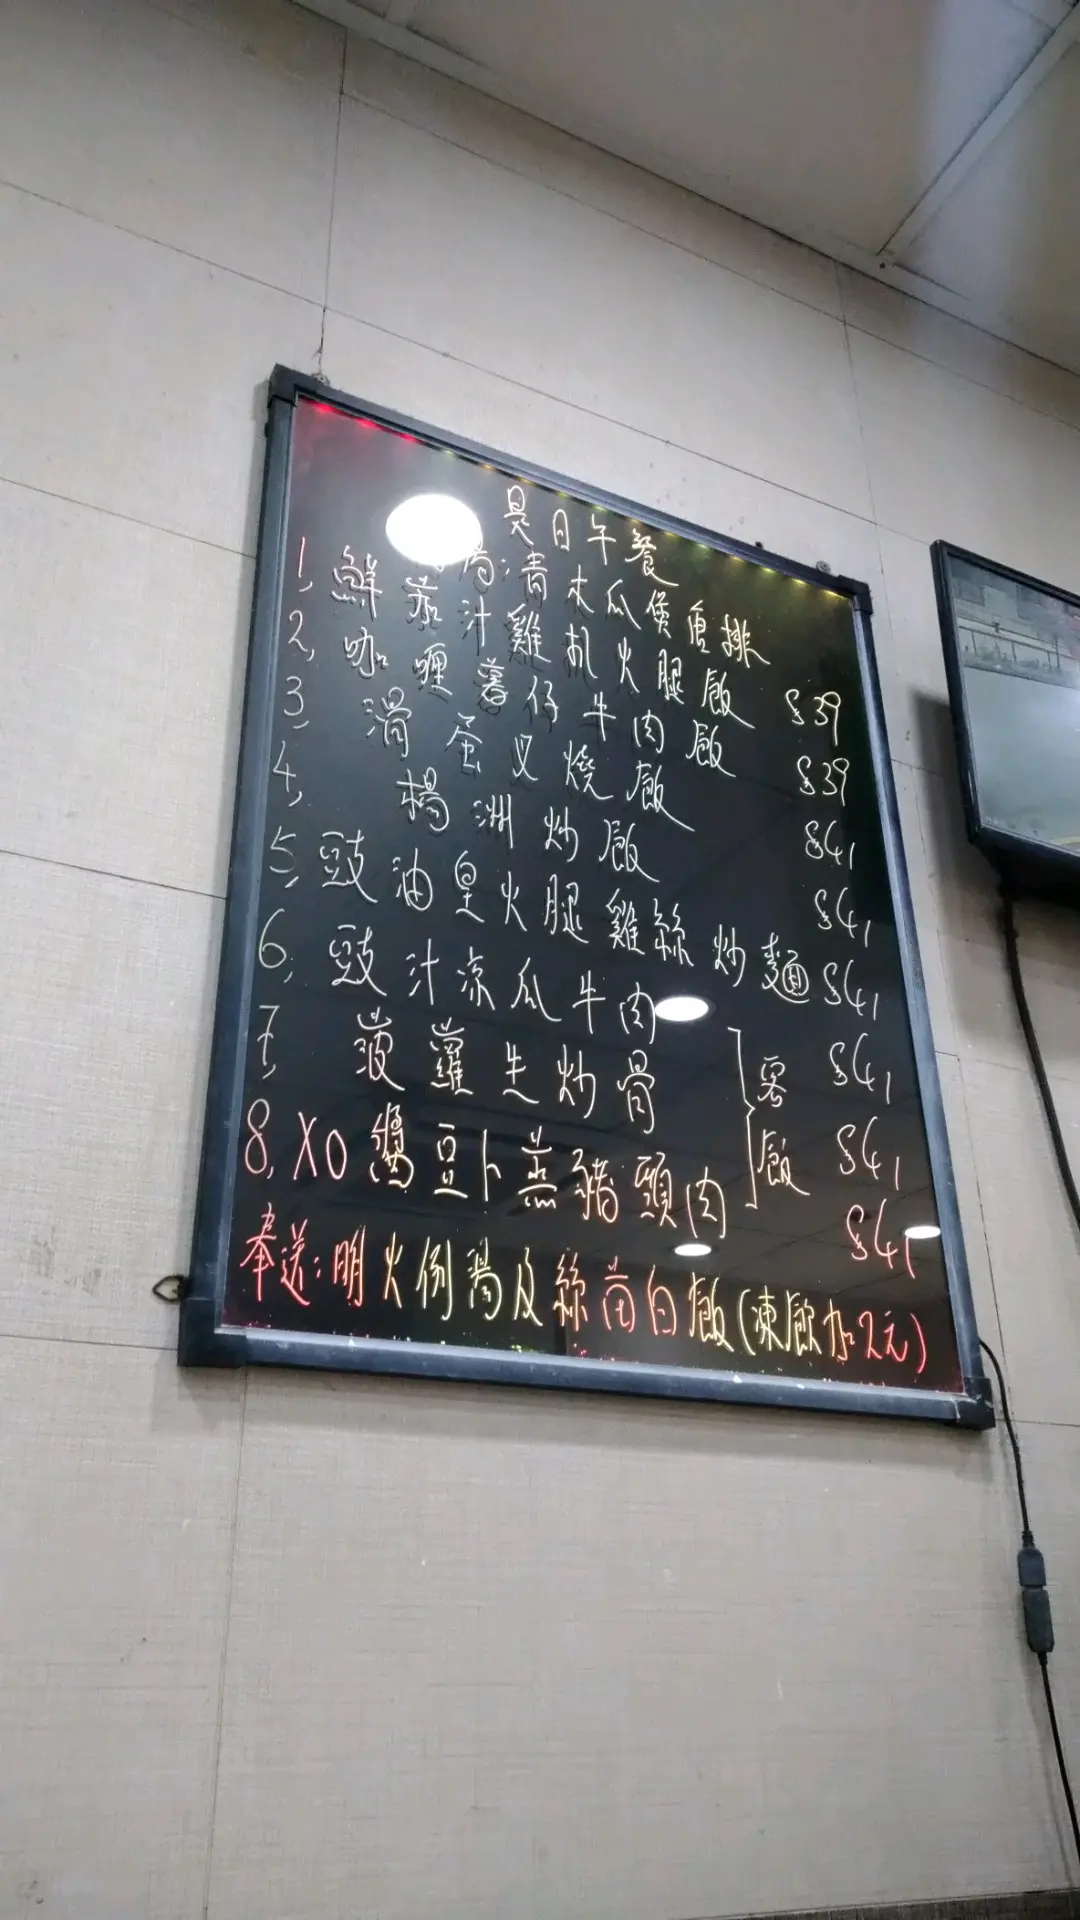 是日午餐
湯:清木瓜煲唐排
1, 鮮茄汁雞扒火腿飯 $39
2, 咖喱薯仔牛肉飯 $39
3, 滑蛋叉燒飯 $41
4, 楊洲炒飯 $41
5, 豉油皇火腿雞絲炒麵 $41
6, 豉汁凉瓜牛肉 $41
7, 菠蘿生炒骨 客飯 $41
8, XO醬豆卜蒸豬頭肉 $41
奉送:明火例湯及絲苗白飯(凍飲加2元)